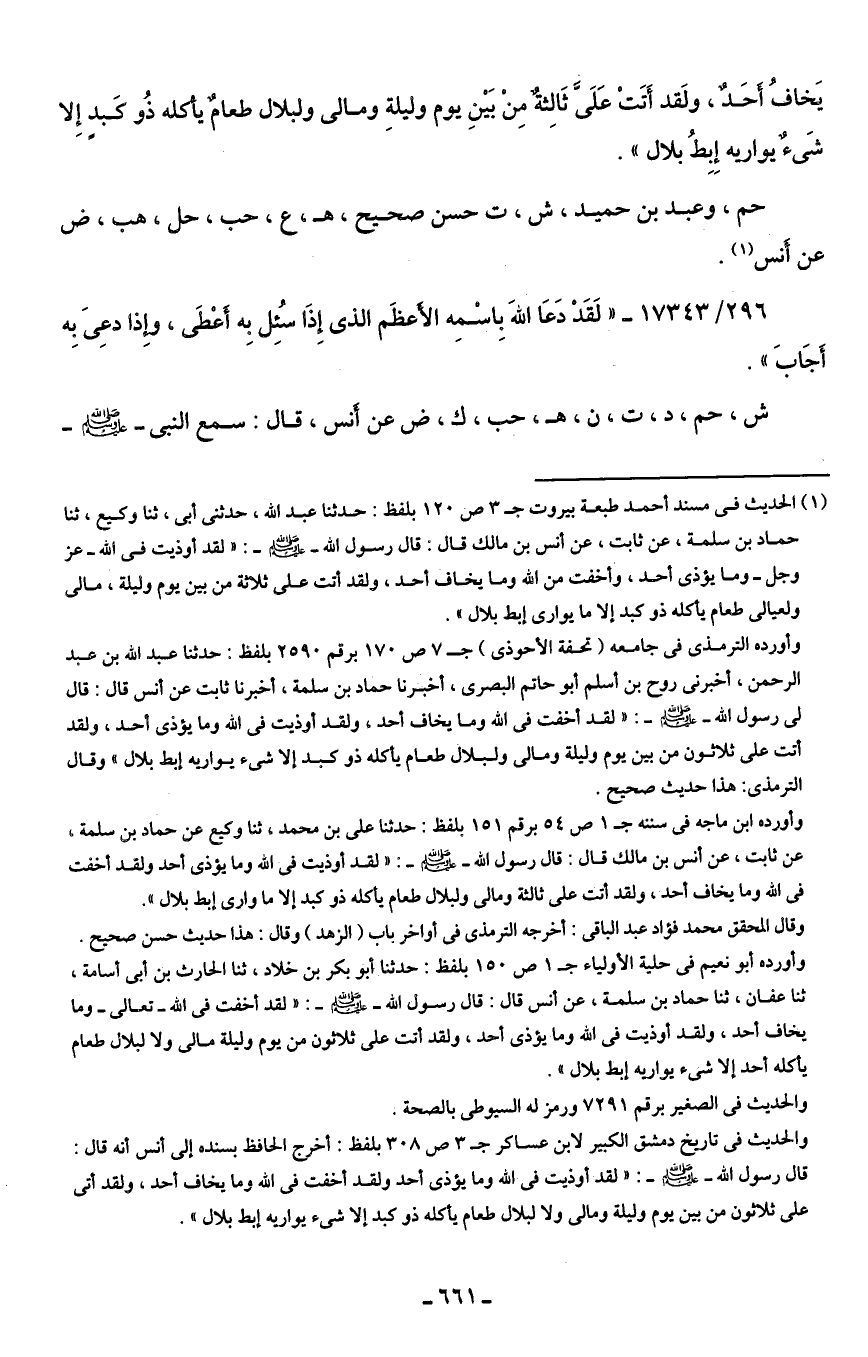 يَخافُ أَحَدٌ ، ولَقد أَتَتْ عَلَىَّ ثَالِثةٌ مِنْ بَيْنِ يوم وليلةِ ومالى ولبلال طعامٌ يأكله ذُو كَبدٍ إِلا
شَىءٌ يواريه إِبطُ بلال » .
حم ، وعبد بن حميد ، ش ، ت حسن صحيح ، هـ ، ع ، حب ، حل ، هب ، ض
عن أَنس(١) .
٢٩٦/ ١٧٣٤٣ ـ « لَقَدْ دَعَا اللهَ بِاسْمِه الأَعظَم الذى إِذَا سئُِل بِه أَعْطَى ، وإِذا دعىَ بِه
أَجَابَ » .
ش ، حم ، د ، ت ، ن ، هـ ، حب ، ك ، ض عن أَنس ، قال : سمع النبى ـ ﷺ ـ
(١) الحديث فى مسند أحمد طبعة بيروت جـ ٣ ص ١٢٠ بلفظ : حدثنا عبد الله ، حدثنى أبى ، ثنا وكيع ، ثنا
حماد بن سلمة ، عن ثابت ، عن أنس بن مالك قال : قال رسول الله ـ ﷺ ـ : « لقد أوذيت فى الله ـ عز
وجل ـ وما يؤذى أحد ، وأخفت من الله وما يخاف أحد ، ولقد أتت على ثلاثة من بين يوم وليلة ، مالى
ولعيالى طعام يأكله ذو كبد إلا ما يوارى إبط بلال » .
وأورده الترمذى فى جامعه ( تحفة الأحوذى ) جـ ٧ ص ١٧٠ برقم ٢٥٩٠ بلفظ : حدثنا عبد الله بن عبد
الرحمن ، أخبرنى روح بن أسلم أبو حاتم البصرى ، أخبرنا حماد بن سلمة ، أخبرنا ثابت عن أنس قال : قال
لى رسول الله ـ ﷺ ـ : « لقد أخفت فى الله وما يخاف أحد ، ولقد أوذيت فى الله وما يؤذى أحد ، ولقد
أتت على ثلاثون من بين يوم وليلة ومالى ولبلال طعام يأكله ذو كبد إلا شىء يواريه إبط بلال » وقال
الترمذى: هذا حديث صحيح .
وأورده ابن ماجه فى سننه جـ ١ ص ٥٤ برقم ١٥١ بلفظ : حدثنا على بن محمد ، ثنا وكيع عن حماد بن سلمة ،
عن ثابت ، عن أنس بن مالك قال : قال رسول الله ـ ﷺ ـ : « لقد أوذيت فى الله وما يؤذى أحد ولقد أخفت
فى الله وما يخاف أحد ، ولقد أتت على ثالثة ومالى ولبلال طعام يأكله ذو كبد إلا ما وارى إبط بلال ».
وقال المحقق محمد فؤاد عبد الباقى : أخرجه الترمذى فى أواخر باب ( الزهد ) وقال : هذا حديث حسن صحيح .
وأورده أبو نعيم فى حلية الأولياء جـ ١ ص ١٥٠ بلفظ : حدثنا أبو بكر بن خلاد ، ثنا الحارث بن أبى أسامة ،
ثنا عفان ، ثنا حماد بن سلمة ، عن أنس قال : قال رسول الله ـ ﷺ ـ : « لقد أخفت فى الله ـ تعالى ـ وما
يخاف أحد ، ولقد أوذيت فى الله وما يؤذى أحد ، ولقد أتت على ثلاثون من يوم وليلة مالى ولا لبلال طعام
يأكله أحد إلا شىء يواريه إبط بلال » .
والحديث فى الصغير برقم ٧٢٩١ ورمز له السيوطى بالصحة .
والحديث فى تاريخ دمشق الكبير لابن عساكر جـ ٣ ص ٣٠٨ بلفظ : أخرج الحافظ بسنده إلى أنس أنه قال :
قال رسول الله ـ ﷺ ـ : « لقد أوذيت فى الله وما يؤذى أحد ولقد أخفت فى الله وما يخاف أحد ، ولقد أتى
على ثلاثون من بين يوم وليلة ومالى ولا لبلال طعام يأكله ذو كبد إلا شىء يواريه إبط بلال » .
ـ ٦٦١ ـ